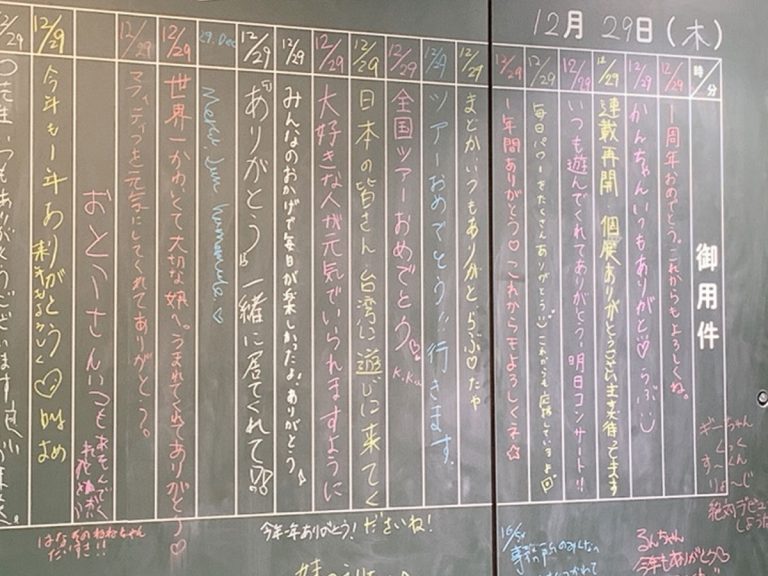 12月 29日(木)
時/分
御用件
12/29
一周年おめでとう。これからもよろしくね。
12/29
かんちゃんいつもありがと♡らぶ
12/29
連載再開・個展ありがとうございます。待ってます
12/29
いつも遊んでくれてありがとう。明日コンサート!!
12/29
毎日パワーをたくさんありがとう これからも応援しているよ
12/29
一年間ありがとう♡これからもよろしくネ☆
12/29
まどか、いつもありがと らぶ♡たや
12/29
ツアーおめでとう!行きます。
12/29
全国ツアーおめでとう♡ K.Ku
12/29
日本の皆さん 台湾に遊びに来てく
ださいね!
12/29
大好きな人が元気でいられますように
12/29
みんなのおかげで毎日が楽しかったよ。ありがとう
12/29
"ありがとう"一緒に居てくれて
29. Dec
12/29
世界一かわいくて大切な娘へ。うまれてくれてありがとう♡
12/29
マフィティフを元気にしてくれてありがとう。
おとうさんいつも
12/29
今年も1年ありがとう♡
来年もよろしく
/29
いつもありがとうございます。
今年一年ありがとう!
はなちゃん
だいすき
ぎーちゃん
くっくん
す〜じ
絶対デビュー
しようね
るんちゃん
今年もありがとう♡
事務所のみんなへ